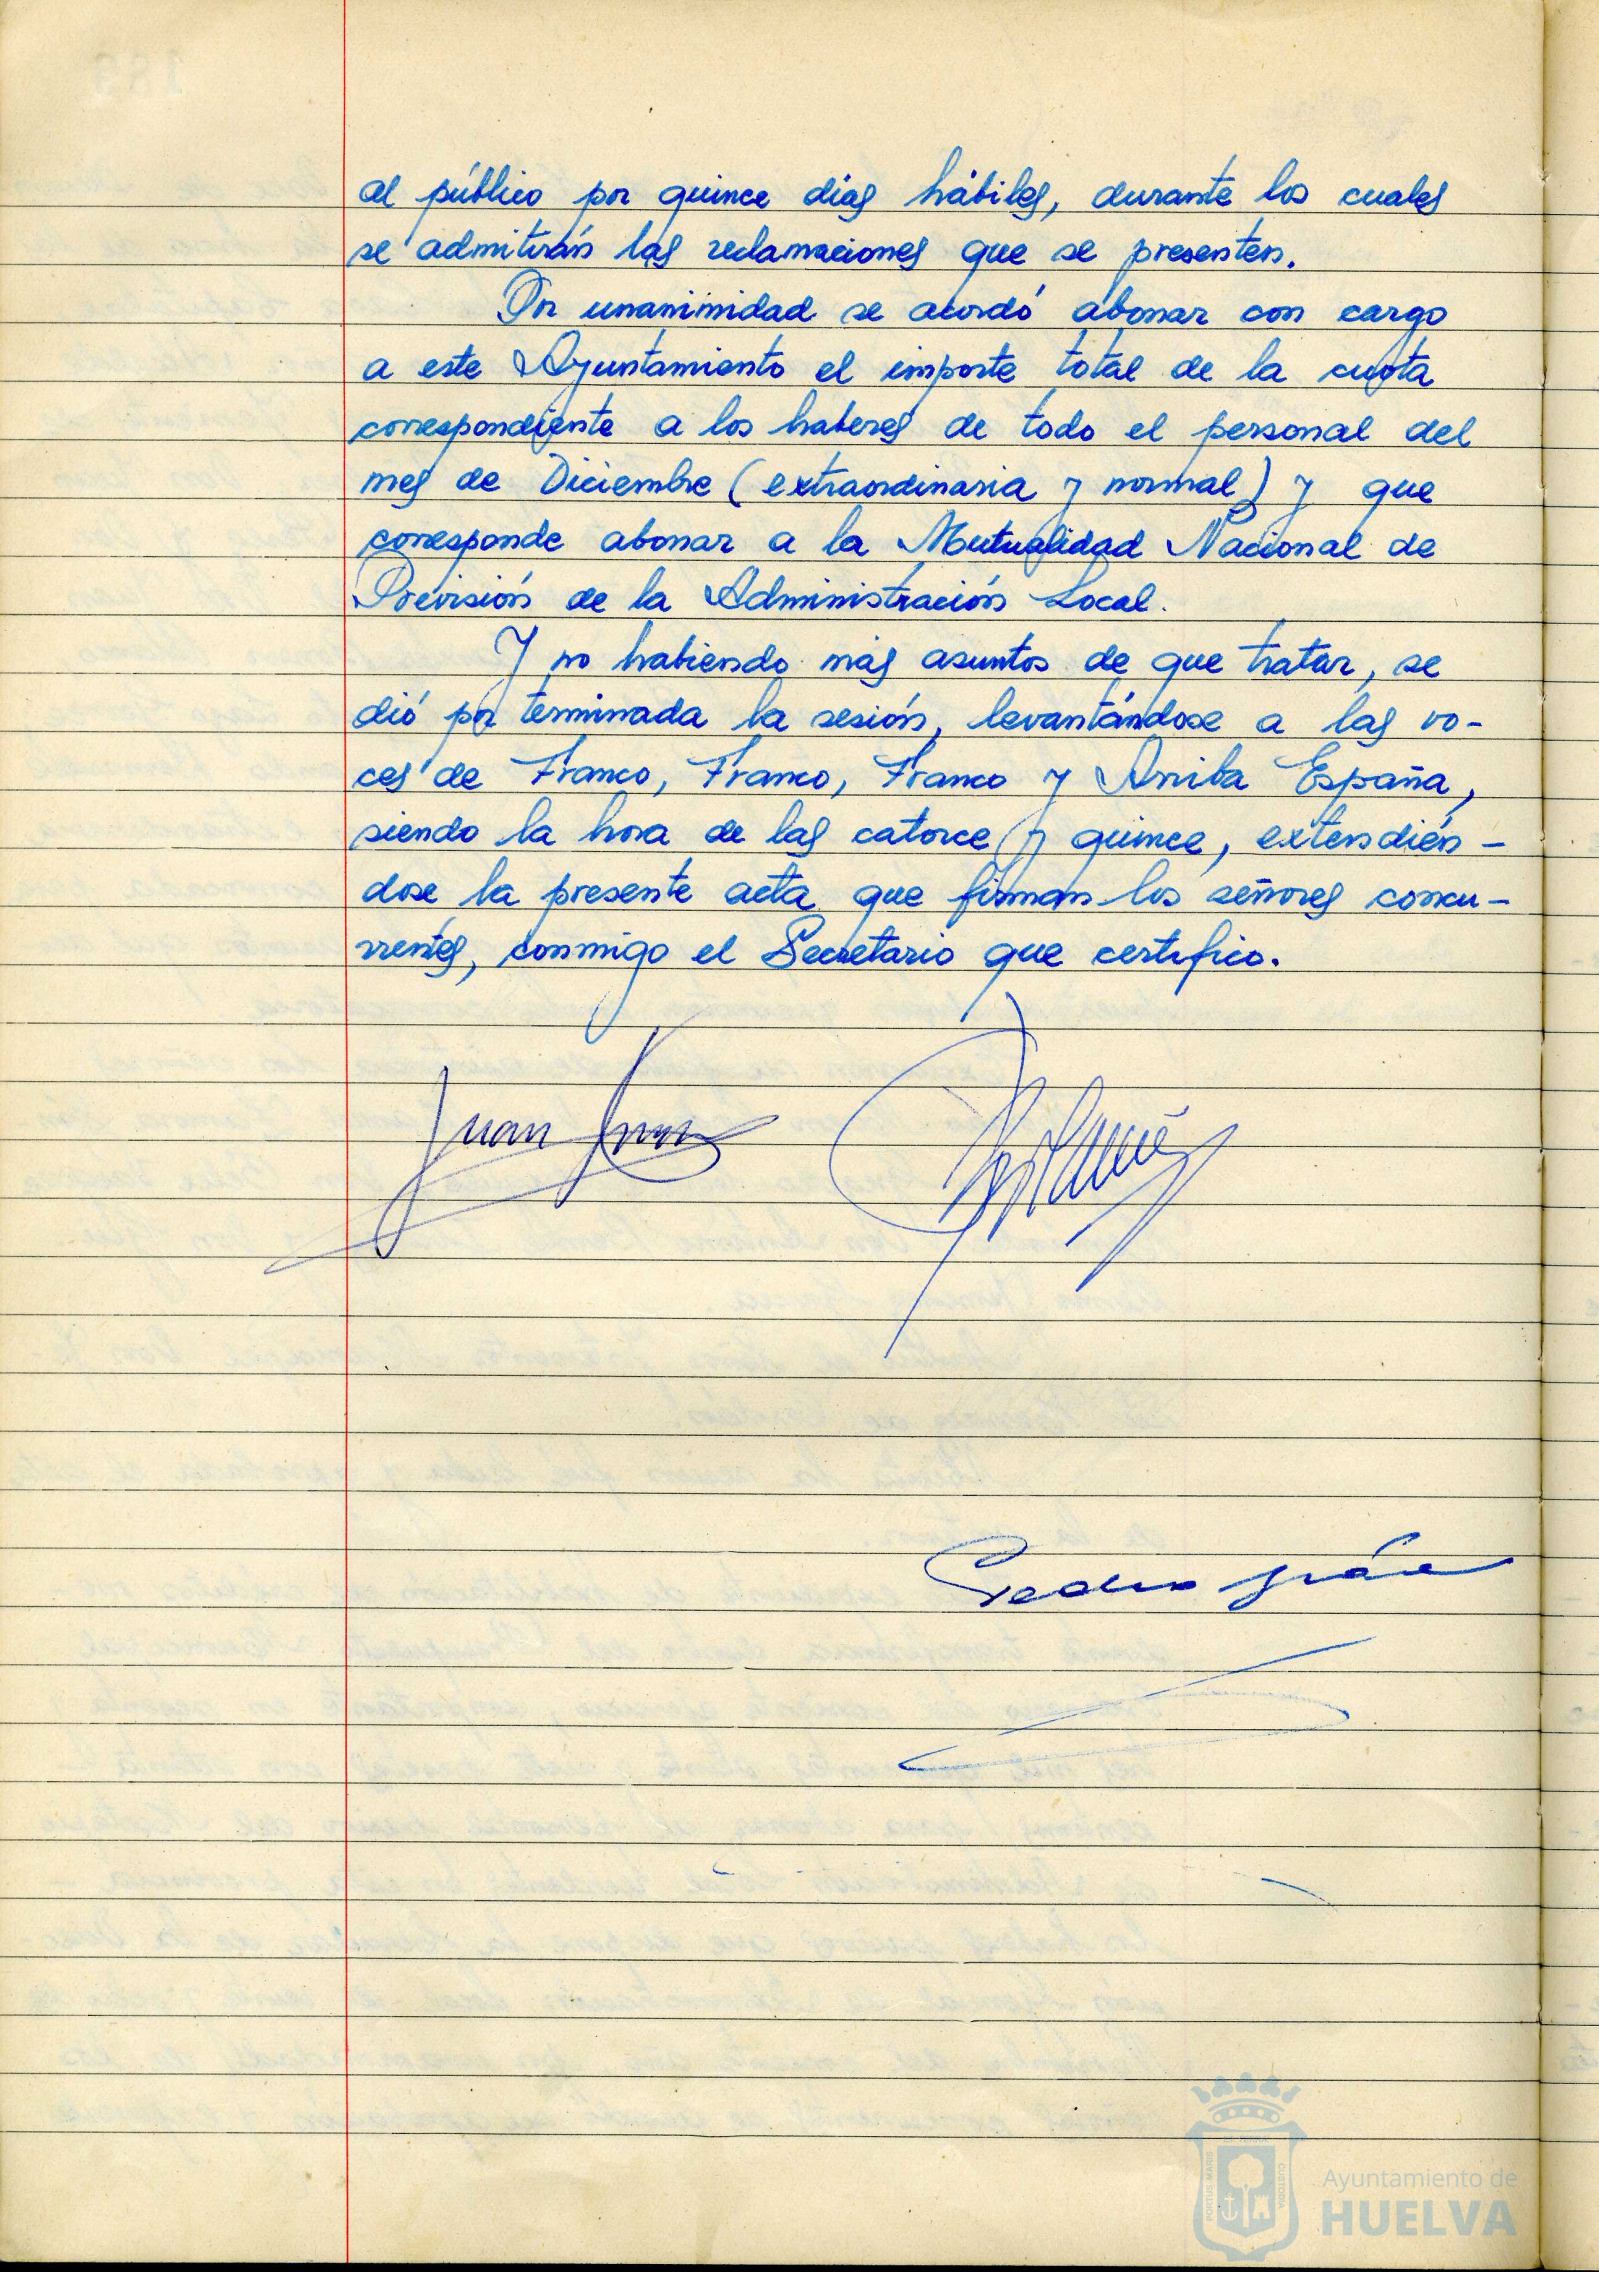 al público por quince días hábiles, durante los cuales
se admitirán las reclamaciones que se presenten.
Por unanimidad se acordó abonar con cargo
a este Ayuntamiento el importe total de la cuota
correspondiente a los haberes de todo el personal del
mes de Diciembre (extraordinaria y normal) y que
corresponde abonar a la Mutualidad Nacional de
Previsión de la Administración Local.
Y no habiendo más asuntos de que tratar, se
dió por terminada la sesión, levantándose a las vo-
ces de Franco, Franco, Franco y Arriba España,
siendo la hora de las catorce y quince, extendién-
dose la presente acta que firman los señores concu-
rrentes, conmigo el Secretario que certifico.
Juan
Pedro
PORTUS MARIS
CUSTODIA
Ayuntamiento de
HUELVA